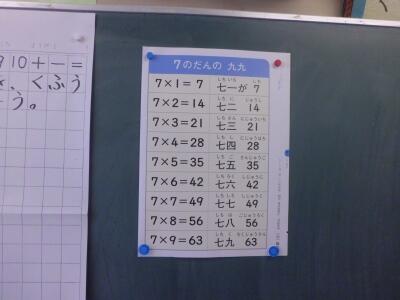 910+-=
くふう
う。
7のだんの 九九
7×1=7 七一が 7
7×2=14 七二 14
7×3=21 七三 21
7×4=28 七四 28
7×5=35 七五 35
7×6=42 七六 42
7×7=49 七七 49
7×8=56 七八 56
7×9=63 七九 63